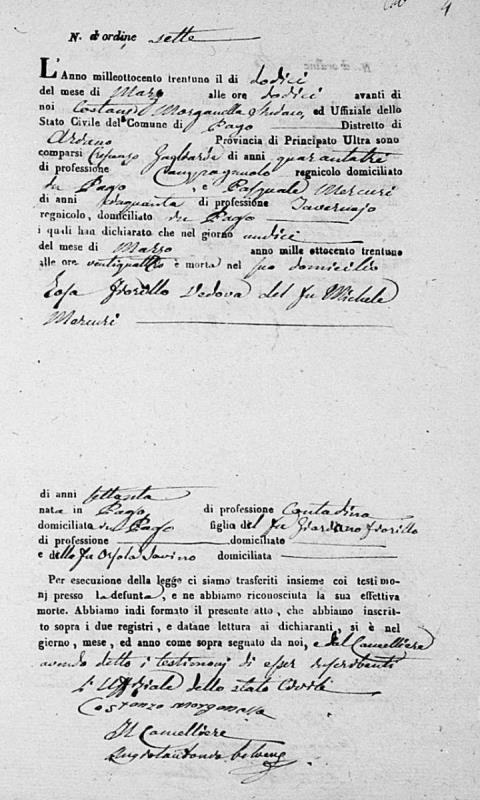 4
N. d'ordine sette
L'Anno milleottocento trentuno il di dodici
del mese di Marzo alle ore dodici avanti di
noi Costanzo Morganella Sindaco, ed Uffiziale dello
Stato Civile del Comune di Pago Distretto di
Ariano Provincia di Principato Ultra sono
comparsi Crescenzo Gagliarde di anni quarantatre
di professione Campagnuolo regnicolo domiciliato
in Pago, e Pasquale Mercuri
di anni cinquanta di professione Tavernajo
regnicolo, domiciliato in Pago
i quali han dichiarato che nel giorno undici
del mese di Marzo anno mille ottocento trentuno
alle ore ventiquattro è morta nel suo domicilio
Rosa Fiorillo Vedova del fu Michele
Mercuri
di anni settanta
nata in Pago di professione Contadina
domiciliata in Pago figlia del fu Giordano Fiorillo
di professione domiciliato
e della fu Orsola Iovino domiciliata
Per esecuzione della legge ci siamo trasferiti insieme coi testimo
nj presso la defunta, e ne abbiamo riconosciuta la sua effettiva
morte. Abbiamo indi formato il presente atto, che abbiamo inscrit-
to sopra i due registri, e datane lettura ai dichiaranti, si è nel
giorno, mese, ed anno come sopra segnato da noi, e dal Cancelliere
avendo detto i testimonj di esser inscribenti
L'Uffiziale dello stato Civile
Costanzo Morganella
Il Cancelliere